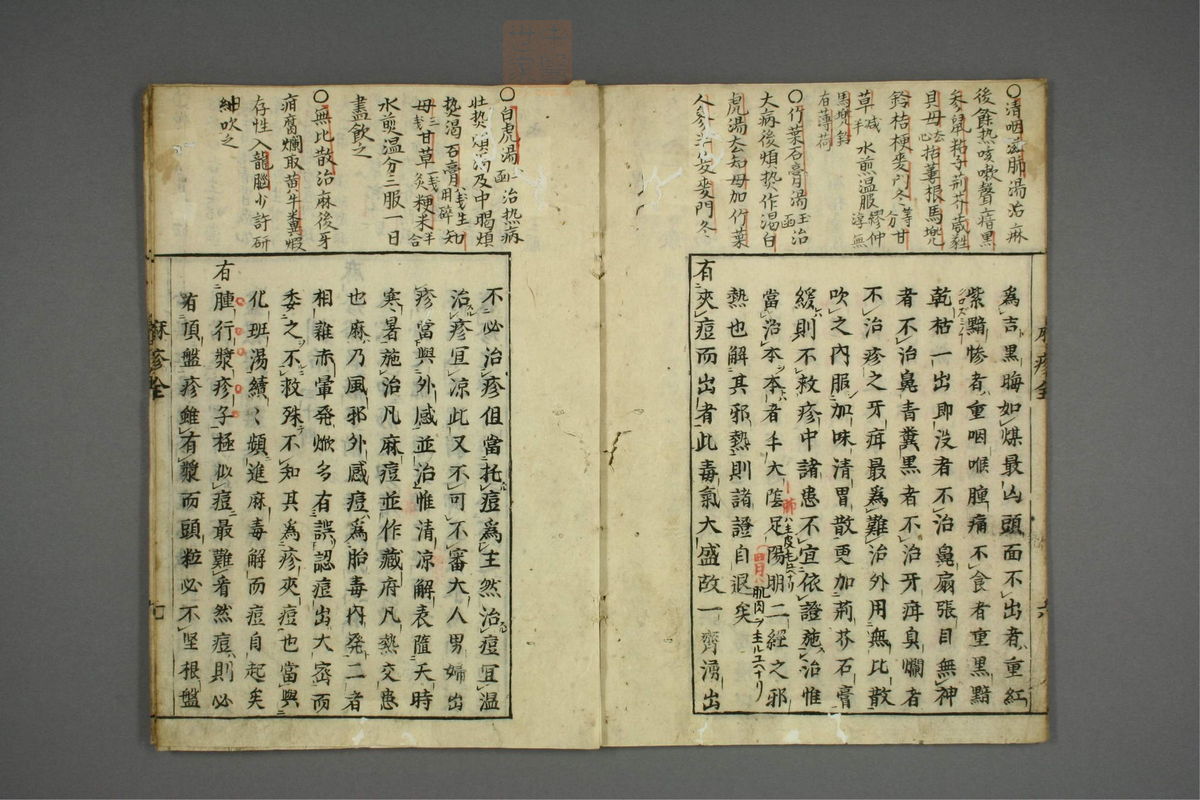 〇清咽滋肺湯治麻
後餘热咳嗽聲瘖黒
参鼠粘子荊芥葳蕤
貝母去心括蔞根馬兜
鈴桔梗麥門冬等分甘
草減半水煎温服繆仲淳無
馬兜鈴
有薄荷
〇竹葉石膏湯玉函治
大病後煩热作渇白
虎湯去知母加竹葉
人参半夏麥門冬
為吉黒晦如煤最凶頭面不出者重紅
紫黯惨者重咽喉腫痛不食者重黒黯
乾枯一出即没者不治鼻扇張目無神
者不治鼻青糞黒者不治牙疳臭爛者
不治疹之牙疳最為難治外用無比散
吹之内服加味清胃散更加荊芥石膏
緩則不救疹中諸患不宜依證施治惟
當治本本者手大陰足陽明二經之邪
熱也解其邪熱則諸證自退矣
有夾痘而出者此毒氣大盛故一齊湧出
肺ハ主皮毛エヘナリ
胃ハ肌肉ヲ主ルユヘナリ
〇白虎湯函治热病
壮热煩渇及中暍煩
热渇石膏八戔生用碎知
母三戔甘草一戔炙粳米半合
水煎温分三服一日
盡飲之
〇無比散治麻後牙
疳腐爛取黄牛糞煅
存性入龍腦少許研
紬吹之
不必治疹但當托痘為主然治痘宜温
治疹宜凉此又不可不審大人男婦出
疹當與外感並治惟清凉解表隨天時
寒暑施治凡麻痘並作藏府凡熱交患
也麻乃風邪外感痘為胎毒内発二者
相雜赤暈発焮多有誤認痘出大密而
委之不救殊不知其為疹夾痘也當與
化斑湯續〻頻進麻毒解而痘自起矣
有腫行漿疹子極似痘最難看然痘則必
有頂盤疹雖有漿而頭粒必不坚根盤
麻疹全
七
麻疹全
六